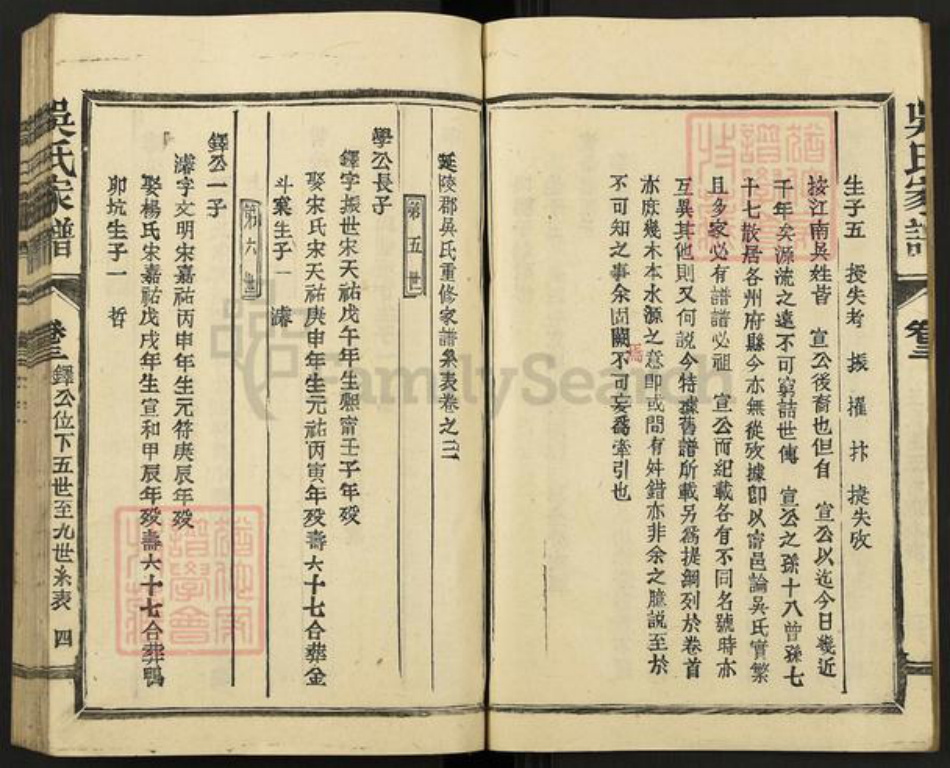 吳氏家譜
卷三
生子五 授失考 振 擢 抃 捷失攷
按江南吳姓皆 宣公後裔也但自 宣公以迄今日幾近
千年矣源流之遠不可窮詰世傳 宣公之孫十八曾孫七
十七散居各州府縣今亦無從攷據卽以甯邑論吳氏實繁
且多家必有譜譜必祖 宣公而紀載各有不同名號時亦
互異其他則又何説今特據舊譜所載另爲提綱列於卷首
亦庶幾木本水源之意卽或間有舛錯亦非余之臆説至於
不可知之事余固闕焉不可妄爲牽引也
延陵郡吳氏重修家譜系表卷之三
第五世
學公長子
鐸字振世宋天祐戊午年生熙甯壬子年歿
娶宋氏宋天祐庚申年生元祐丙寅年歿壽六十七合葬金
斗窠生子一 濬
第六世
鐸公一子
濬字文明宋嘉祐丙申年生元符庚辰年歿
娶楊氏宋嘉祐戊戌年生宣和甲辰年歿壽六十七合葬鴨
卵坑生子一 哲
吳氏家譜
卷三
鐸公位下五世至九世系表 四
FamilySearch